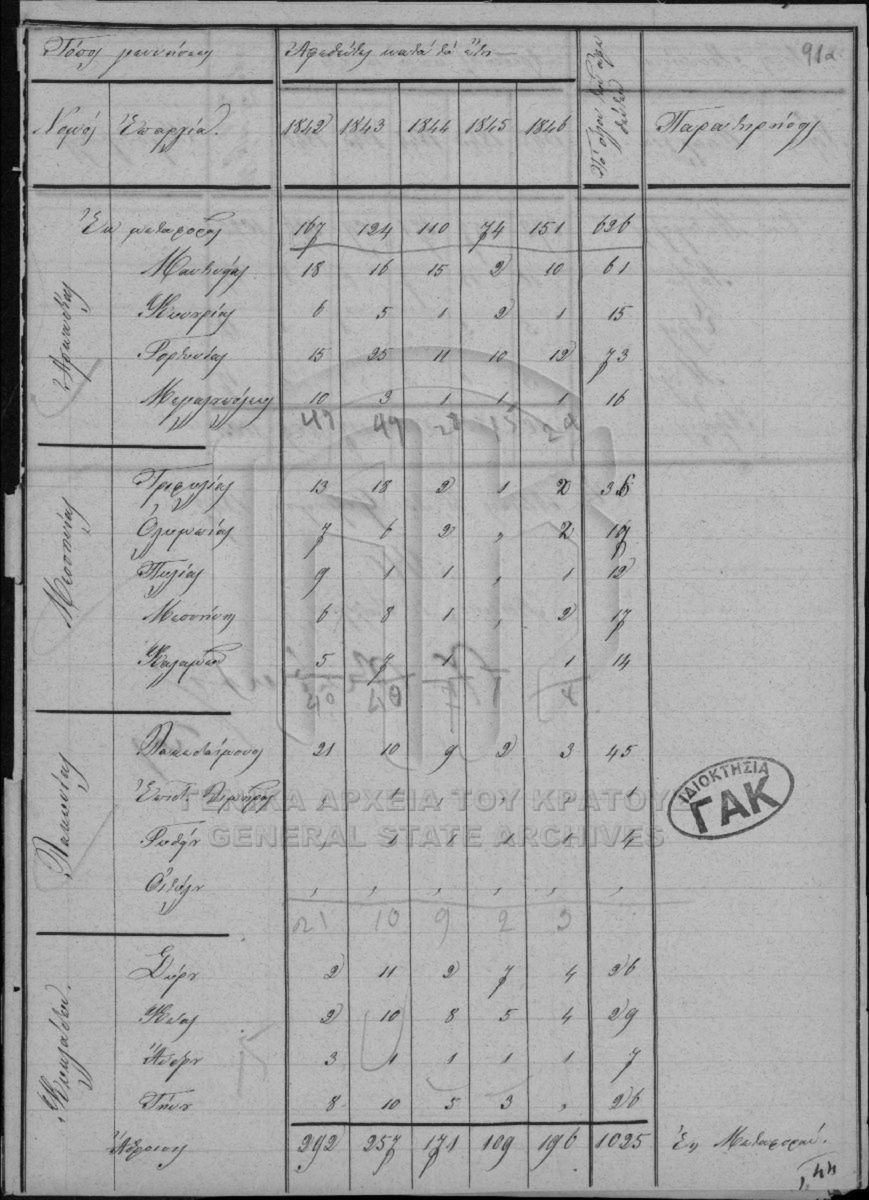 Τόπος γεννήσεως Ἀφεθέντες κατὰ τὸ ἔτος 91α
Νομός Ἐπαρχία. 1842 1843 1844 1845 1846 Παρατηρήσεις
Ἐκ μεταφορᾶς 167 124 110 74 151 626
Ἀρκαδίας
Μαντινείας 18 16 15 2 10 61
Κυνουρίας 6 5 1 2 1 15
Γορτυνίας 15 25 11 10 12 73
Μεγαλοπόλεως 10 3 1 1 1 16
49 49 28 15 24
Μεσσηνίας
Τριφυλίας 13 18 2 1 2 36
Ὀλυμπίας 7 6 2 , 2 17
Πυλίας 9 1 1 , 1 12
Μεσσήνης 6 8 1 , 2 17
Καλαμῶν 5 7 1 1 14
40 40 7 1 8
Λακωνίας
Λακεδαίμονος 21 10 9 2 3 45
Ἐπιδ. Λιμηρᾶς , 1 , , , 1
Γύθειον
Οἴτυλον , , , , , ,
21 10 9 2 3
Κυκλάδων.
Σύρου 2 11 2 7 4 26
Κέας 2 10 8 5 4 29
Ἄνδρου 3 1 1 1 1 7
Τήνου 8 10 5 3 , 26
Ἄθροισις 292 257 171 109 196 1025 Εἰς Μεταφοράν.
1,44
ΓΕΝΙΚΑ ΑΡΧΕΙΑ ΤΟΥ ΚΡΑΤΟΥΣ
GENERAL STATE ARCHIVES
ΙΔΙΟΚΤΗΣΙΑ
ΓΑΚ